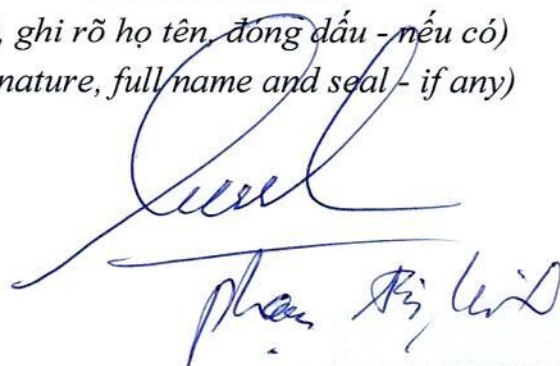 , ghi rõ họ tên, đóng dấu - nếu có)
nature, full name and seal - if any)
Phạm